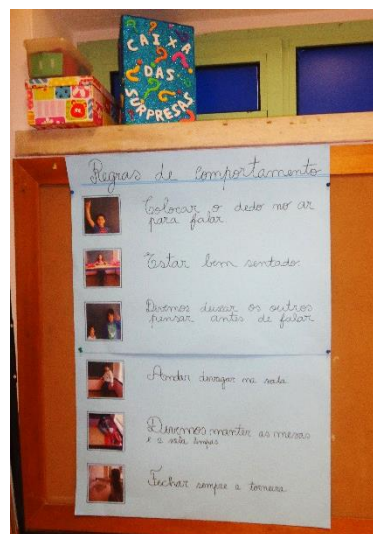 CAIXA
DAS
SURPRESAS
Regras de comportamento
Colocar o dedo no ar
para falar
Estar bem sentado
Devemos deixar os outros
pensar antes de falar
Andar devagar na sala.
Devemos manter as mesas
e a sala limpas
Fechar sempre a torneira.